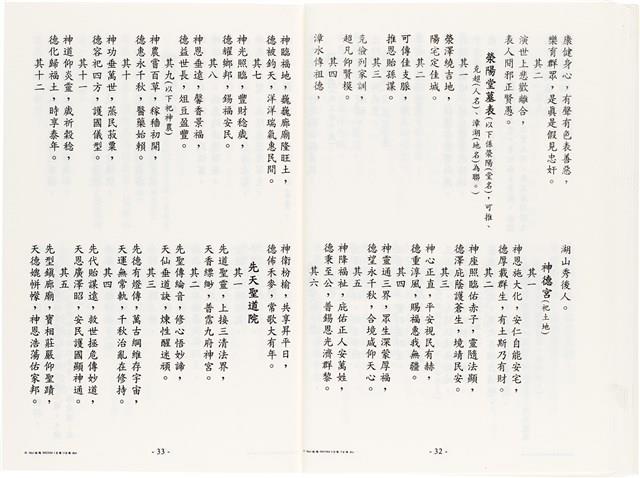 康健身心，有聲有色表善惡，
樂育群眾，是真是假見忠奸。
其二
演世上悲歡離合，
表人間邪正賢愚。
滎陽堂墓表(以下係滎陽(堂名)，可推、
克超(人名)、漳湖(地名)為聯。)
其一
滎澤繞吉地，
陽宅定佳城。
其二
可傳佳支脈，
推恩貽孫謀。
其三
克儉列家訓，
超凡仰賢模。
其四
漳水傳祖德，
湖山秀後人。
神德宮(祀土地)
其一
神恩施大化，安仁自能安宅，
德厚載群生，有土斯乃有財。
其二
神座照臨佑赤子，靈隨法顯，
德澤庇蔭護蒼生，境靖民安。
其三
神心正直，平安視民有赫，
德重淳風，賜福惠我無疆。
其四
神靈通三界，眾生深蒙厚福，
德望永千秋，合境咸仰天心。
其五
神降福祉，庇佑正人安萬姓，
德秉至公，普錫恩光濟群黎。
其六
- 32 -
神臨福地，巍巍廊廟隆旺土，
德被鈞天，洋洋瑞氣惠民間。
其七
神光照臨，豐財稔歲，
德耀鄉邦，錫福安民。
其八
神恩垂遠，馨香景福，
德益世長，俎豆盈豐。
其九(以下祀神農)
神農嘗百草，稼穡初開，
德惠永千秋，醫藥始賴。
其十
神功垂萬世，蒸民菽粟，
德容祀四方，護國儀型。
其十一
神道仰炎靈，歲祈穀稔，
德化歸福土，時享泰年。
其十二
神衛枌榆，共享昇平日，
德佈禾麥，常歌大有年。
先天聖道院
其一
先道聖靈，上接三清法界，
天香縹緲，普霑九府神宮。
其二
先聖傳綸音，修心悟妙諦，
天仙垂道訣，煉性醒迷頑。
其三
先德有燈傳，萬古綱維存宇宙，
天運無常軌，千秋治亂在修持。
其四
先代貽謀遠，救世拯危傳妙道，
天恩廣澤昭，安民護國顯神通。
其五
先型鎮廊廟，寶相莊嚴仰聖蹟，
天德媲帡幪，神恩浩蕩佑家邦。
- 33 -